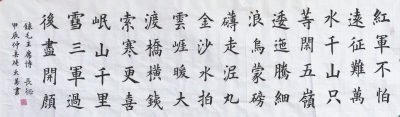 紅軍不怕
遠征難萬
水千山只
等閑五嶺
逶迤騰細
浪烏蒙磅
礴走泥丸
金沙水拍
雲崖暖大
渡橋橫鐵
索寒更喜
岷山千里
雪三軍過
後盡開顏
錄毛主席詩 長征
甲辰仲春 書